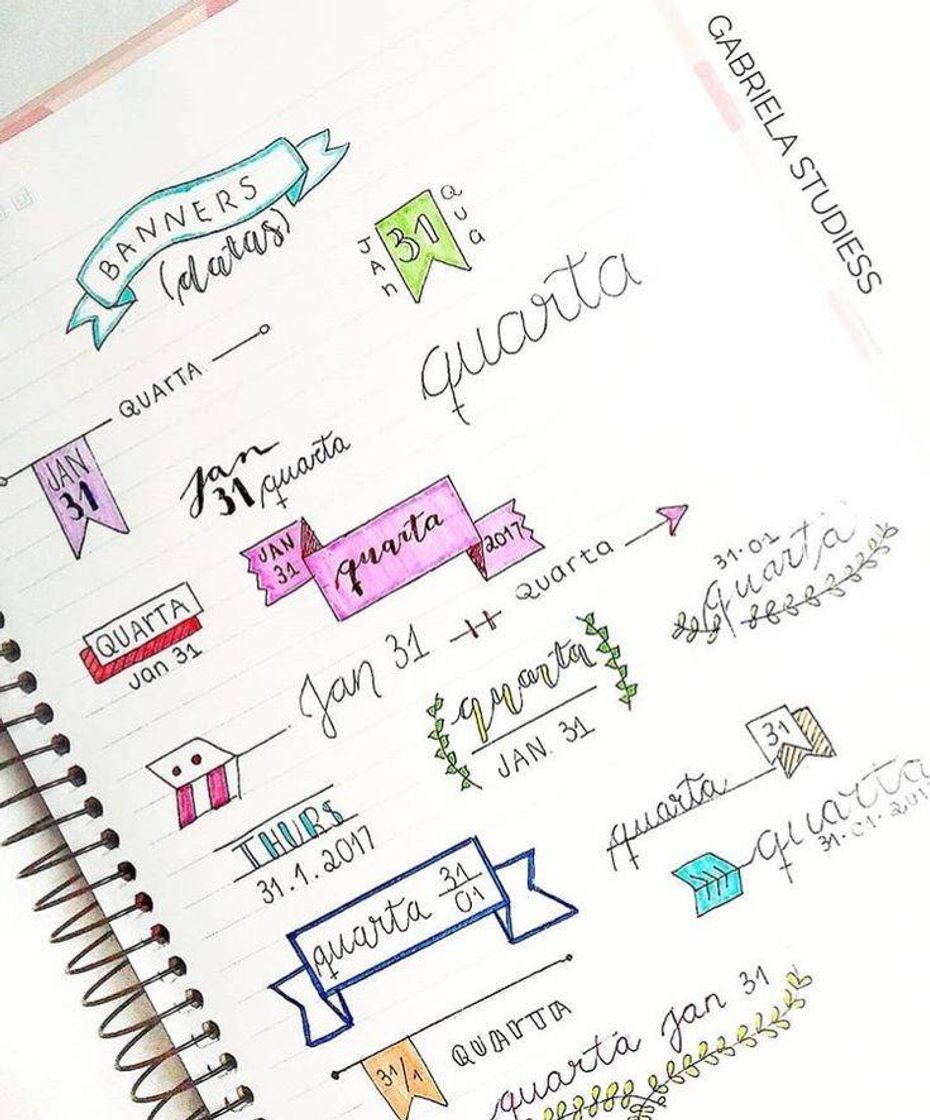 GABRIELA STUDIESS
BANNERS
(datas)
JAN
31
QUA
quarta
QUARTA
JAN
31
Jan
31 quarta
JAN
31
quarta
2017
QUARTA
Jan 31
Jan 31
Quarta
31.01
quarta
quarta
JAN. 31
31
quarta
THURS
31.1.2017
quarta
quarta 31
01
31/1
QUARTA
quarta Jan 31